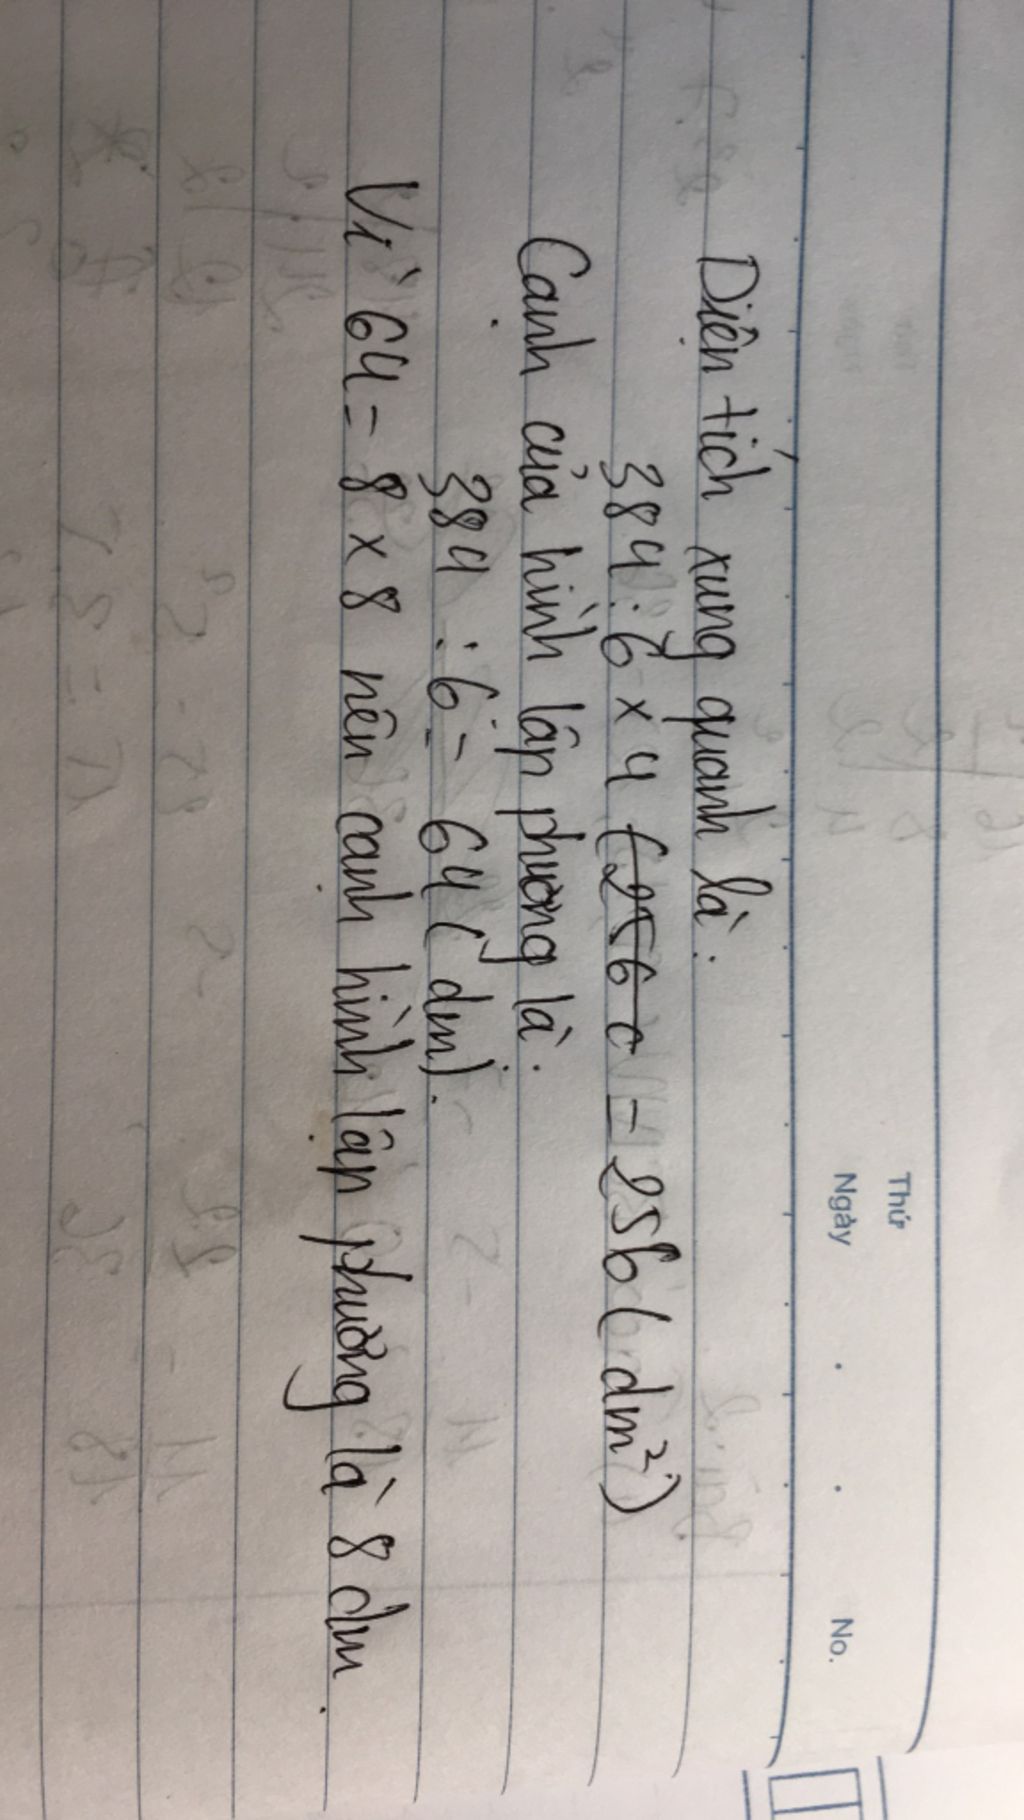 Thứ
Ngày . . No.
Diện tích xung quanh là:
384 : 6 x 4 = 256 ( dm²)
Cạnh của hình lập phương là:
384 : 6 = 64 ( dm).
Vì 64 = 8 x 8 nên cạnh hình lập phương là 8 dm.